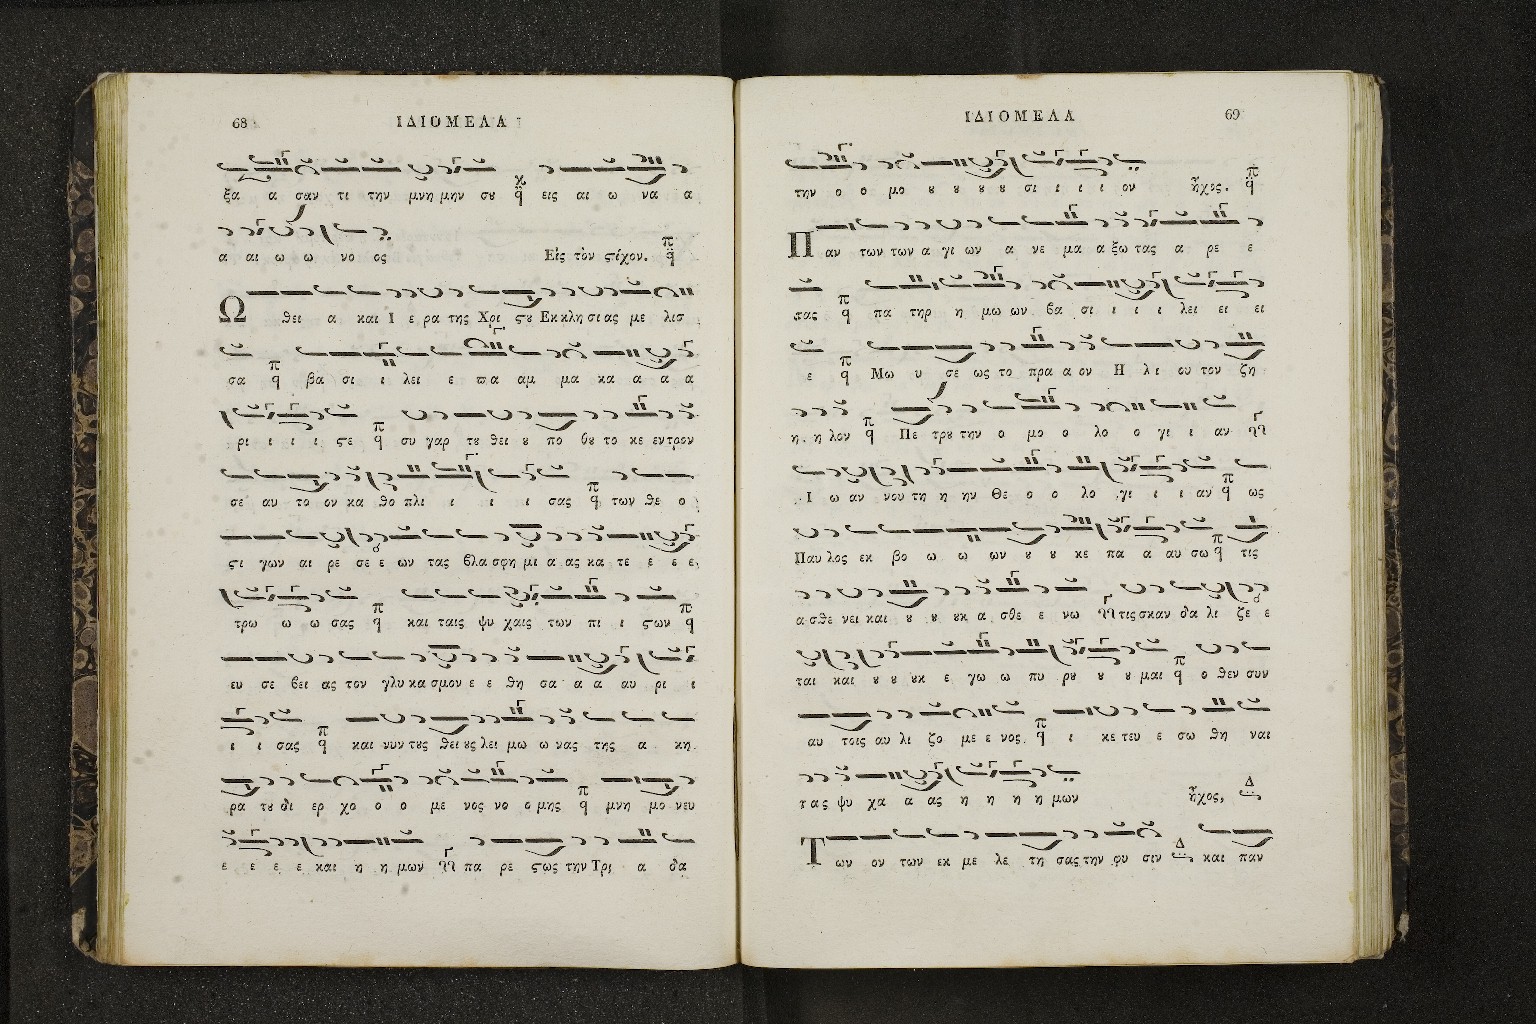 68 ΙΔΙΟΜΕΛΑ
ξα α σαν τι την μνη μην σȣ εις αι ω να α
α αι ω ω νο ος Εἰς τὸν ϛίχον.
Ω θει α και Ι ε ρα της Χρι ϛȣ Εκ κλη σι ας με λισ
σα βα σι ι λει ε πα αμ μα κα α α α
ρι ι ι ι ϛε συ γαρ τȣ θει ȣ πο θȣ το κε εντρον
σε αυ το ον κα θο πλι ι ι ι σας των θε ο
ϛι γων αι ρε σε ε ων τας βλα σφη μι α ας κα τε ε ε ε
τρω ω ω σας και ταις ψυ χαις των πι ι ϛων
ευ σε βει ας τον γλυ κα σμον ε ε θη σα α α αυ ρι ι
ι ι σας και νυν τȣς θει ȣς λει μω ω νας της α κη
ρα τȣ δι ερ χο ο ο με νος νο ο μης μνη μο νευ
ε ε ε ε και η η μων πα ρε ϛως την Τρι α δα
ΙΔΙΟΜΕΛΑ 69
την ο ο μο ȣ ȣ ȣ ȣ σι ι ι ι ον ἦχος.
Παν των των α γι ων α νε μα α ξω τας α ρε ε
τας πα τηρ η μω ων βα σι ι ι ι λει ει ει
ε Μω υ σε ως το πρα α ον Η λι ου τον ζη
η η λον Πε τρȣ την ο μο ο λο ο γι ι αν
Ι ω αν νου τη η ην Θε ο ο λο γι ι ι αν ως
Παυ λος εκ βο ω ω ων ȣ ȣ κε πα α αυ σω τις
α σθε νει και ȣ ȣ ȣκ α σθε ε νω τις σκαν δα λι ζε ε
ται και ȣ ȣ ȣκ ε γω ω πυ ρȣ ȣ ȣ μαι ο θεν συν
αυ τοις αυ λι ζο με ε νος ι κε τευ ε σω θη ναι
τας ψυ χα α ας η η η η μων ἦχος,
Των ον των εκ με λε τη σας την φυ σιν και παν